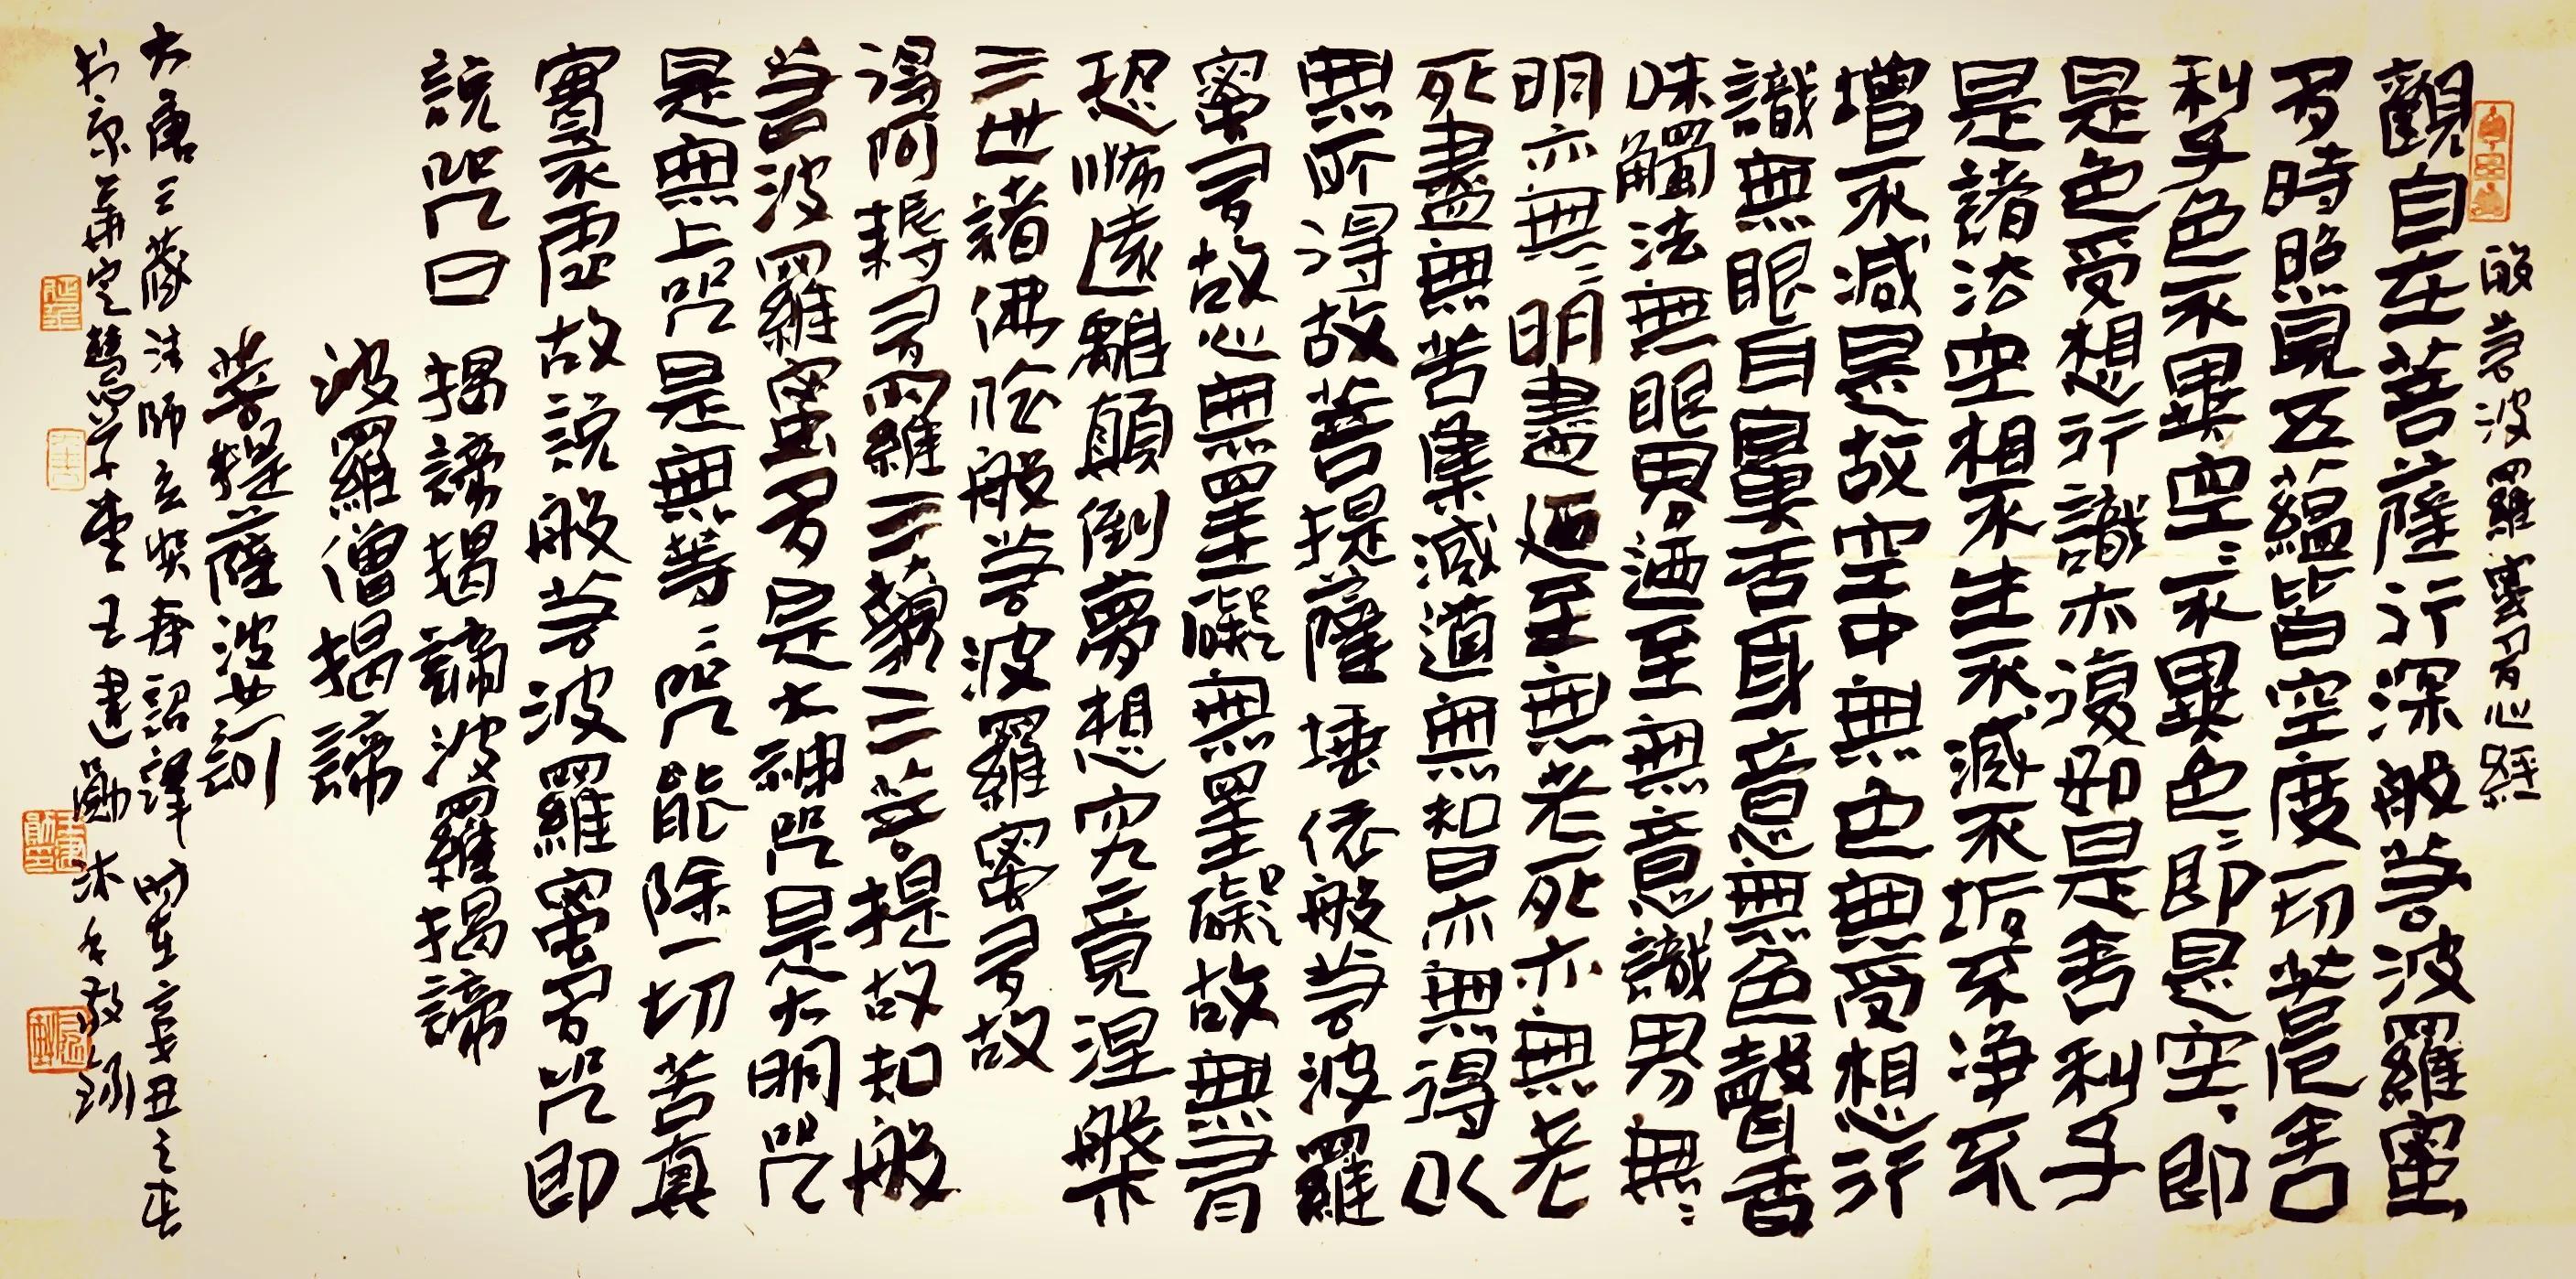 般若波羅蜜多心經
觀自在菩薩行深般若波羅蜜
多時照見五蘊皆空度一切苦厄舍
利子色不異空〻不異色〻即是空〻即
是色受想行識亦復如是舍利子
是諸法空相不生不滅不垢不淨不
增不減是故空中無色無受想行
識無眼耳鼻舌身意無色聲香
味觸法無眼界迺至無意識界無〻
明亦無〻明盡迺至無老死亦無老
死盡無苦集滅道無智亦無得以
無所得故菩提薩埵依般若波羅
蜜多故心無罣礙無罣礙故無有
恐怖遠離顛倒夢想究竟涅槃
三世諸佛依般若波羅蜜多故
得阿耨多羅三藐三菩提故知般
若波羅蜜多是大神咒是大明咒
是無上咒是無等〻咒能除一切苦真
實不虛故說般若波羅蜜多咒即
說咒曰 揭諦揭諦波羅揭諦
波羅僧揭諦
菩提薩婆訶
大唐三藏法師玄奘奉詔譯 時在辛丑之春
於京華定慧學堂 王建勛 沐手敬錄